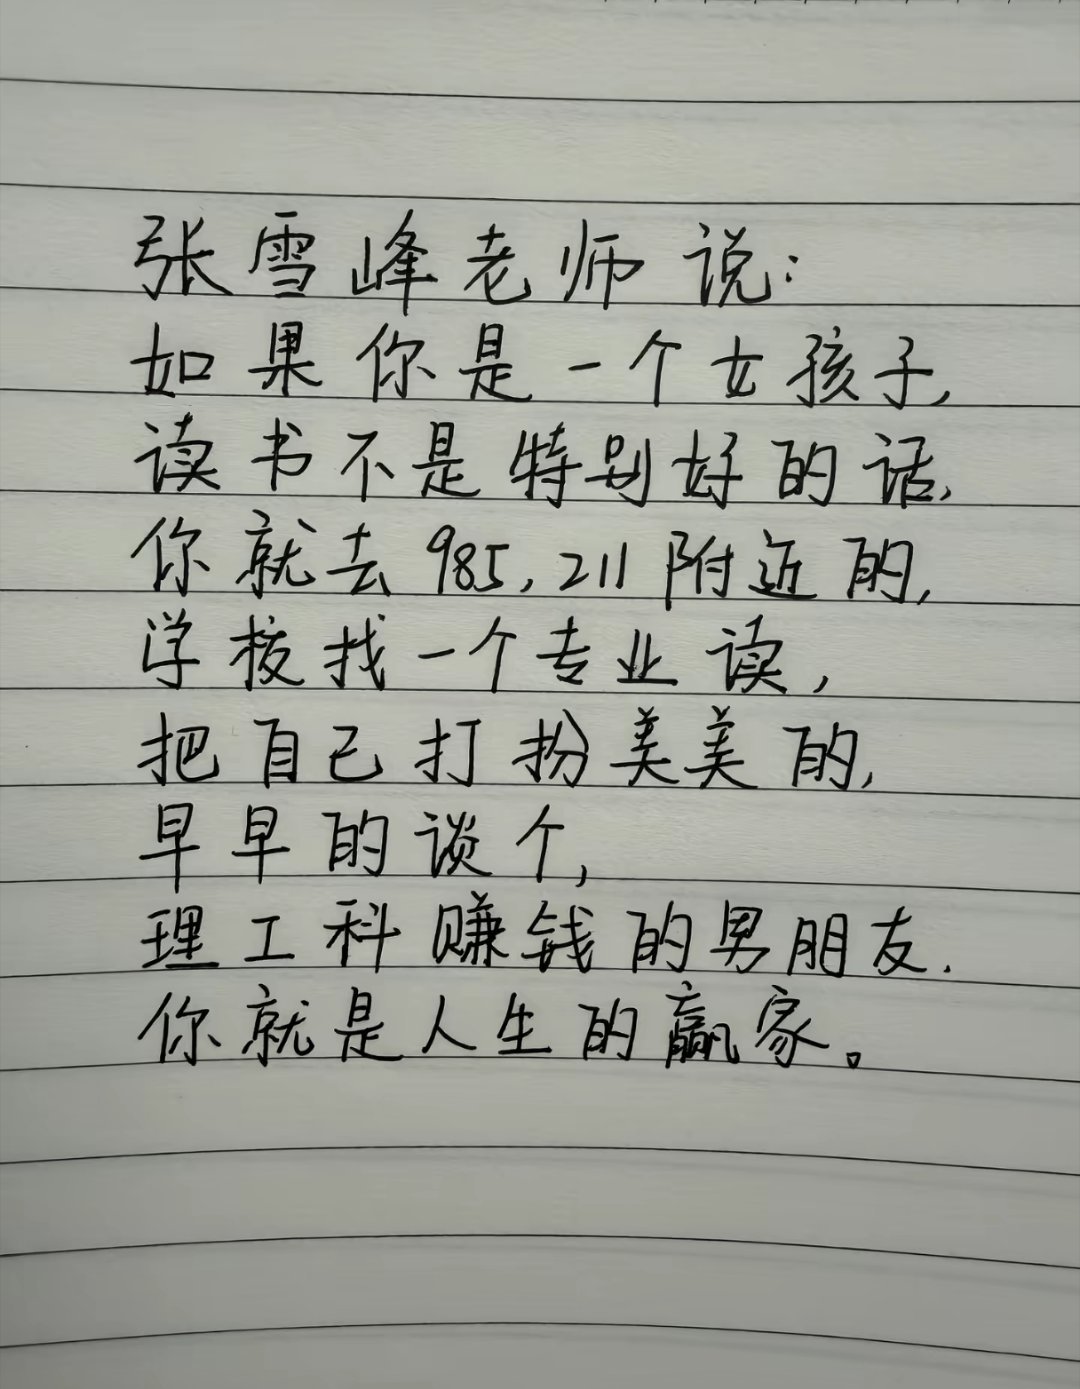 张雪峰老师说:
如果你是一个女孩子,
读书不是特别好的话,
你就去985,211附近的,
学校找一个专业读,
把自己打扮美美的,
早早的谈个,
理工科赚钱的男朋友.
你就是人生的赢家。